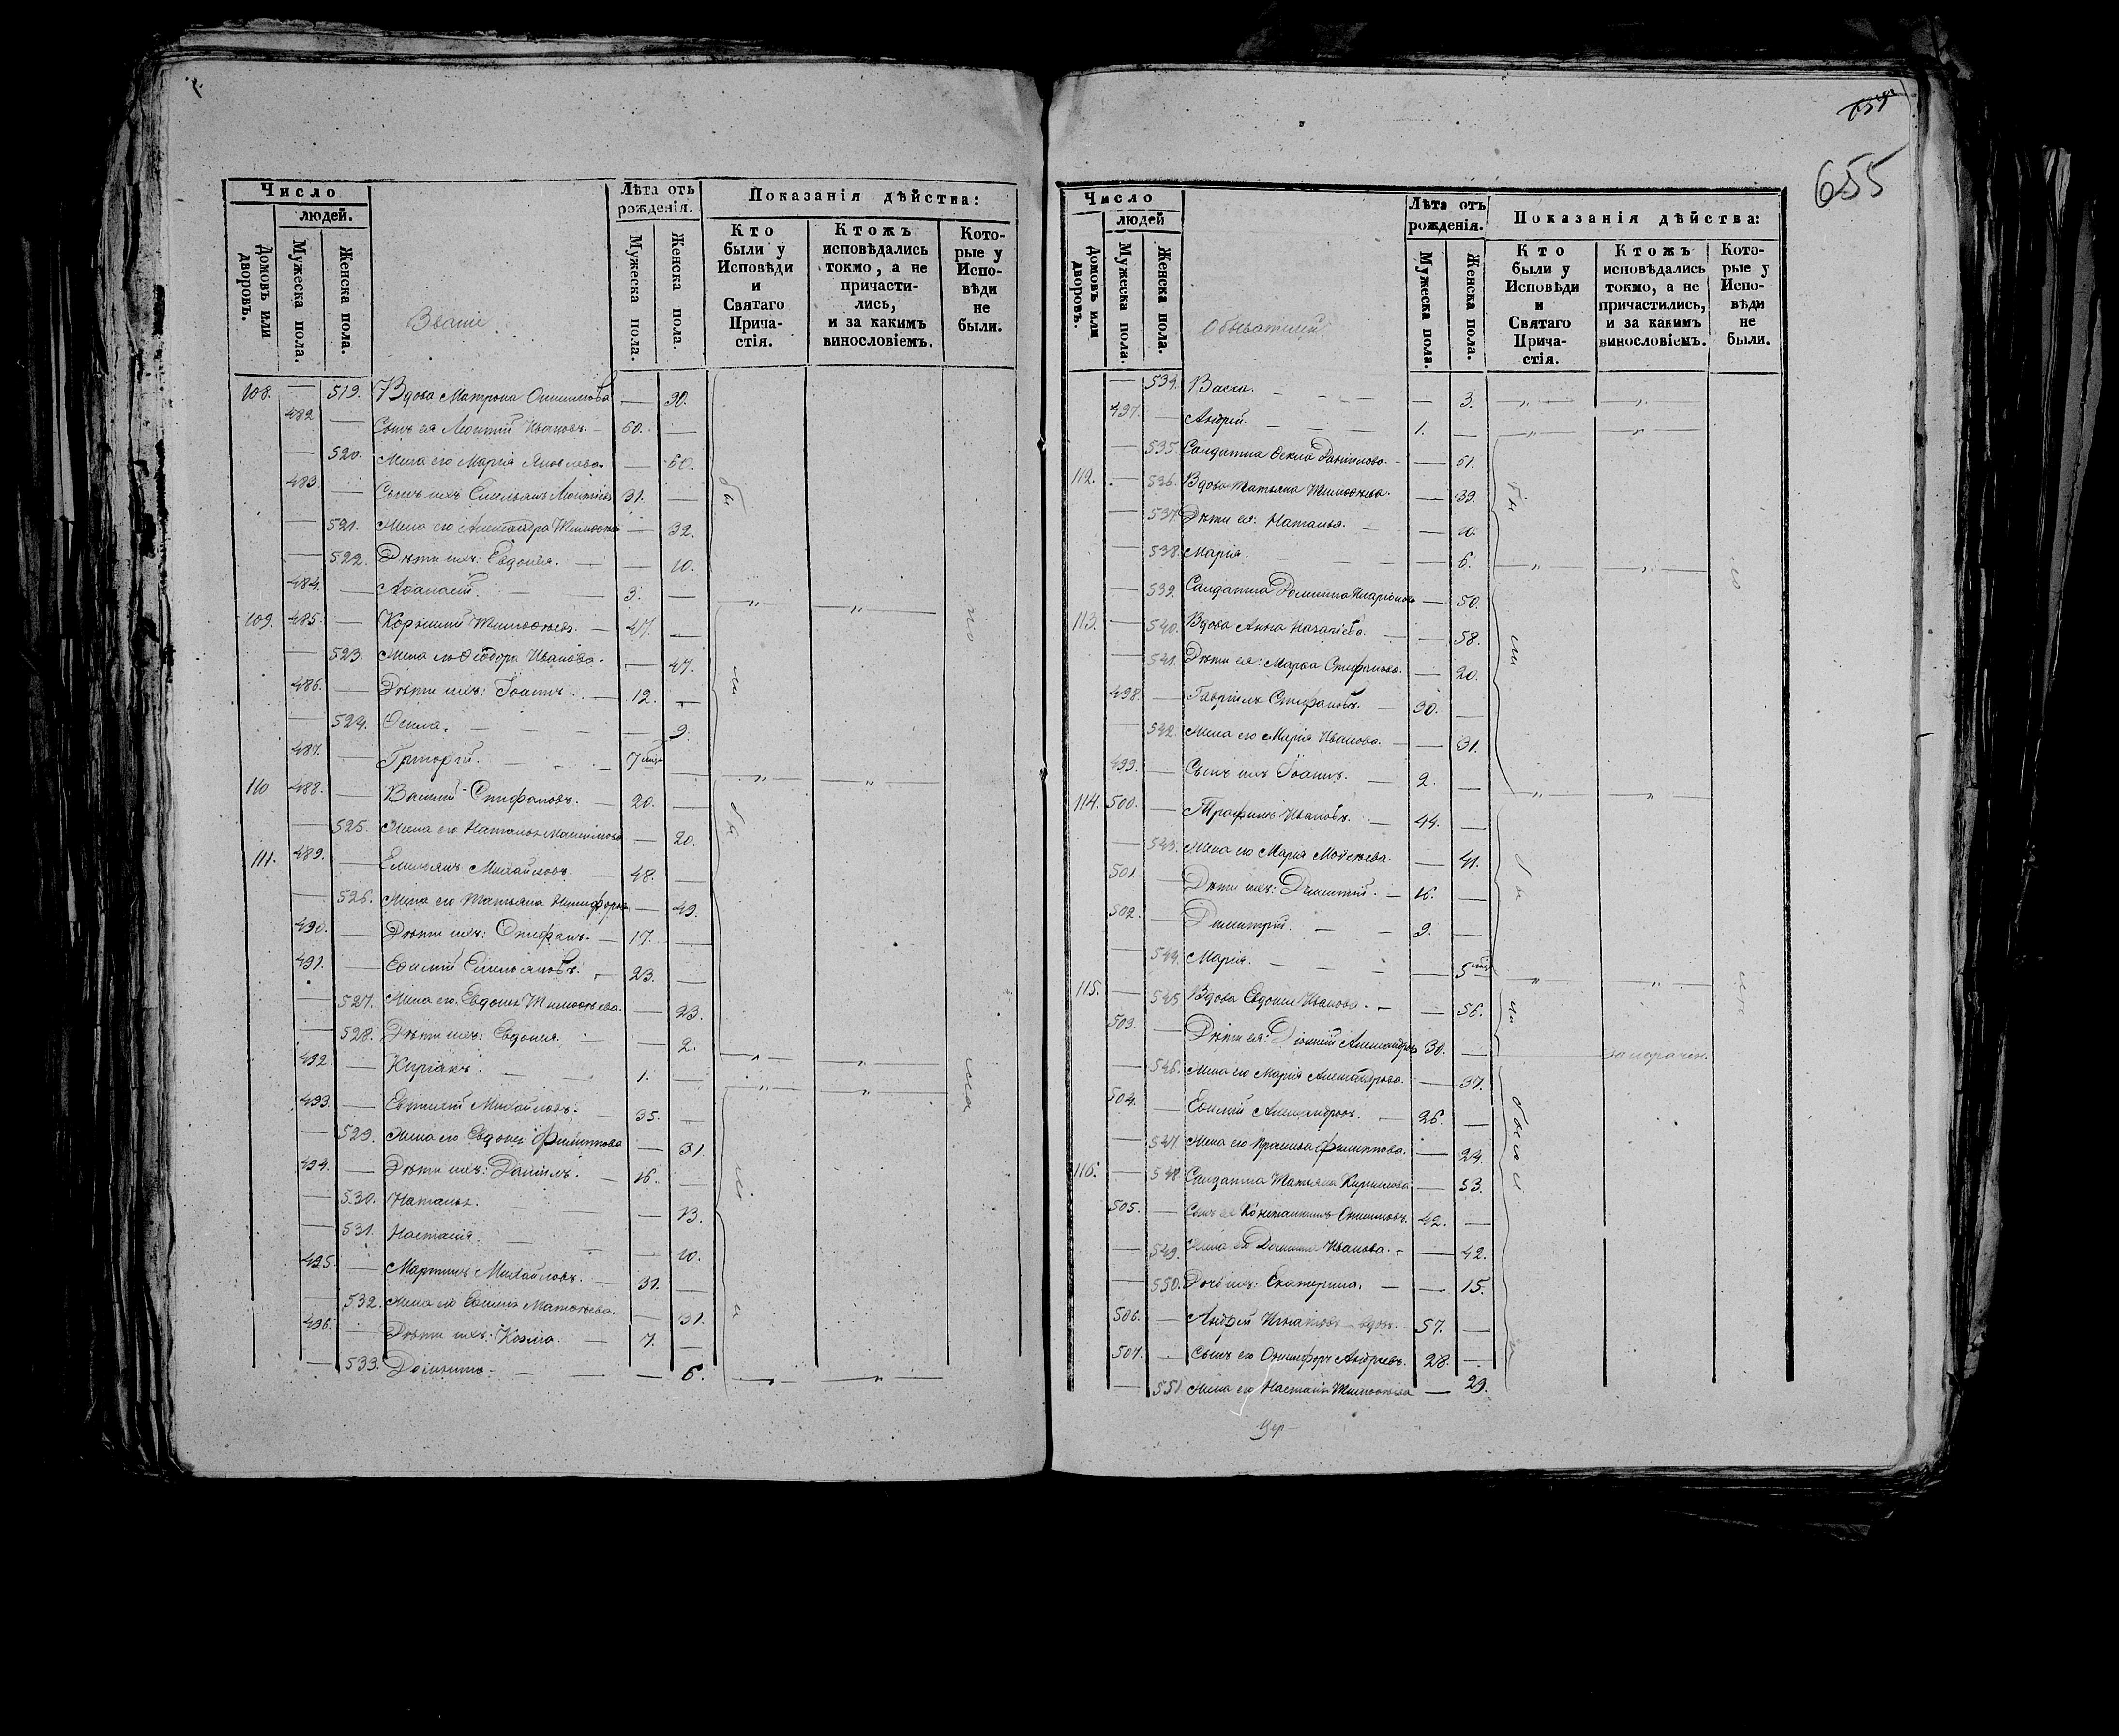 Число
людей.
Домовъ или дворовъ.
Мужеска пола.
Женска пола.
Званіе
Лѣта отъ рожденія.
Мужеска пола.
Женска пола.
Показанія дѣйства:
Кто были у Исповѣди и Святаго Прича-стія.
Ктожъ исповѣдались токмо, а не причасти-лись, и за какимъ винословіемъ.
Кото-рые у Испо-вѣди не были.
108. — 519. Вдова Матрона — 90.
482 — Сынъ ея Леонтій Ивановъ. — 60. —
— 520. Жена его Марія Яковлева — 60.
483. — Сынъ ихъ Емельянъ Леонтіевъ 31. —
— 521. Жена его Александра Тимоѳеева — 32.
— 522. Дѣти ихъ: Евдокія. — — 10.
484. — Аѳанасій. — — 3. —
109. 485. — Корнилій Тимоѳеевъ. — 47. —
— 523. Жена его Ѳеодора Иванова. — 47.
486. — Дѣти ихъ: Іоаннъ. — 12. —
— 524. Ѳекла. — — — 9.
487. — Григорій. — — 7 мѣс —
110 488. — Василій Стефановъ. — 20. —
— 525. Жена его Наталья Максимова — 20.
111. 489. — Емельянъ Михайловъ. — 48. —
— 526. Жена его Татьяна Никифорова — 49.
490. — Дѣти ихъ: Стефанъ. — 17. —
491. — Еѳимій Емельяновъ. — 23. —
— 527. Жена его Евдокія Тимоѳеева. — 23.
— 528. Дѣти ихъ: Евдокія. — — 2.
492. — Киріакъ. — 1. —
493. — Евтихій Михайловъ. — 35. —
— 529. Жена его Евдокія Филиппова — 31.
494. — Дѣти ихъ: Даніилъ. — 16. —
— 530. Наталья. — — — 13.
— 531. Настасія. — — — 10.
495. — Мартинъ Михайловъ. — 31. —
— 532. Жена его Евѳимія Матѳеева. — 31.
496. — Дѣти ихъ: Козма. — 7. —
— 533. Домникія — — — 6.
655
Число
людей
Домовъ или дворовъ.
Мужеска пола.
Женска пола.
Обывателей
Лѣта отъ рожденія.
Мужеска пола.
Женска пола.
Показанія дѣйства:
Кто были у Исповѣди и Святаго Прича-стія.
Ктожъ исповѣдались токмо, а не причастились, и за какимъ винословіемъ.
Кото-рые у Испо-вѣди не были.
— 534. Васса. — — — 3.
497. — Андрей. — — 1. —
— 535. Салдатка Ѳекла Данилова. — — 51.
112. — 536. Вдова Татьяна Тимоѳеева. — 39.
— 537. Дѣти ея: Наталья. — — 10.
— 538. Марія. — — 6.
— 539. Салдатка Домникія Иларіонова — 50.
113. — 540. Вдова Анна Назаріева. — — 58.
— 541. Дѣти ея: Марѳа Стефанова. — 20.
498. — Гавріилъ Стефановъ. — 30. —
— 542. Жена его Марія Иванова. — — 31.
499. — Сынъ ихъ Іоаннъ. — 2. —
114. 500. — Трофимъ Ивановъ. — 44. —
— 543. Жена его Марія Моѵсеева. — 41.
501 — Дѣти ихъ: Дементій. — 16. —
502. — Димитрій. — — 9. —
— 544. Марія. — — — 5 мѣс
115. — 545 Вдова Евдокія Иванова. — — 56.
503. — Дѣти ея: Діонисій Александровъ 30. —
— 546. Жена его Марія Александрова. — 37.
504. — Еѳимій Александровъ. — 26. —
— 547. Жена его Праскевія Филиппова. — 24.
116. — 548. Салдатка Татьяна Кирилова — 53.
505. — Сынъ ея Константинъ 42. —
— 549. Жена его Домникія Иванова. — — 42.
— 550. Дочь ихъ: Екатерина. — — 15.
506. — Андрей Игнатіевъ вдовъ. 57. —
507. — Сынъ его Онисифоръ Андреевъ. 28. —
— 551 Жена его Настасія Тимоѳеева — 29.